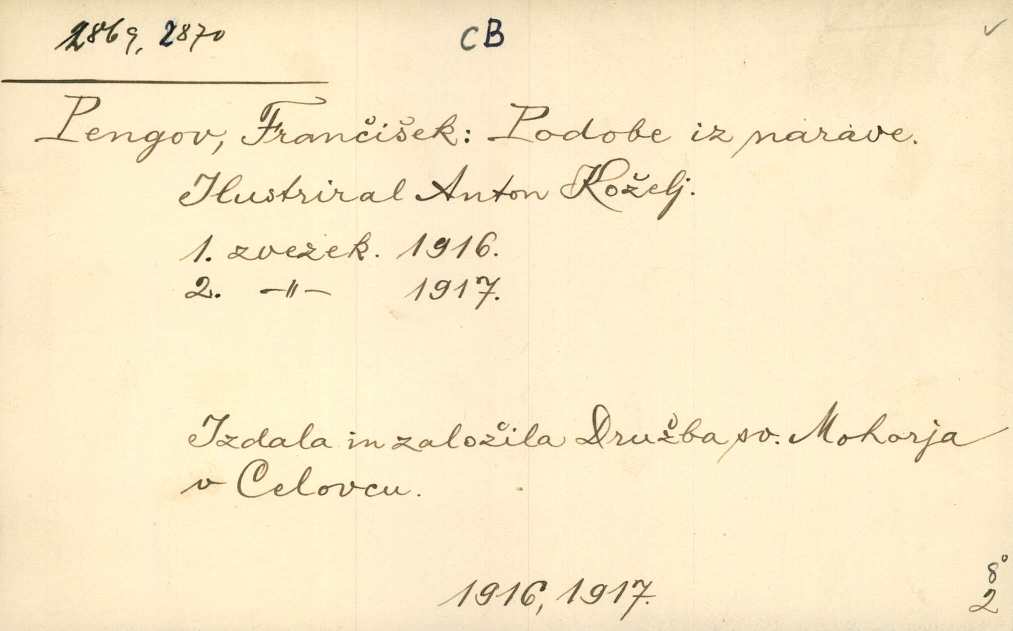 2869, 2870
CB
Pengov, Frančišek: Podobe iz narave.
Ilustriral Anton Koželj.
1. zvezek. 1916.
2. -"- 1917.
Izdala in založila Družba sv. Mohorja
v Celovcu.
1916, 1917.
8°
2